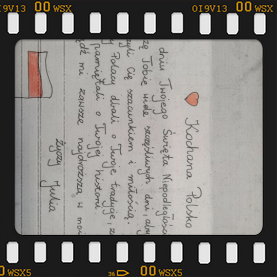 I9V13 00 WSX
OI9V13 00 WSX
Kochana Polsko
dniu Twojego Święta Niepodległości
zę Tobie wiele szczęśliwych dni, aby
yli Cię szacunkiem i miłością.
y Polacy dbali o Twoje tradycje, z
pamiętali o Twojej historii.
dź mi zawsze najdroższa w mo
życzy Julia
00 WSX5
36 00 WSX5